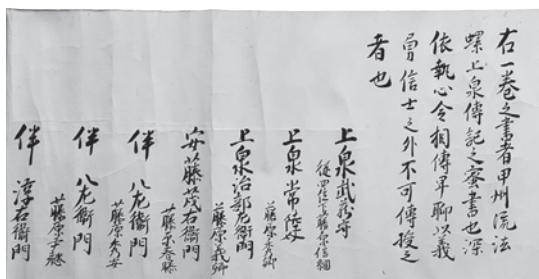 右一巻之書者甲州流法
螺上泉傳記之蜜書也深
依執心令相傳畢聊以義
冐信士之外不可傳授之
者也
上泉武蔵守
従四位下藤原信綱
上泉常陸女
藤原秀綱
上泉治部左衛門
藤原義郷
安藤茂右衛門
藤原春勝
伴八左衛門
藤原秀安
伴八左衛門
伴淳右衛門